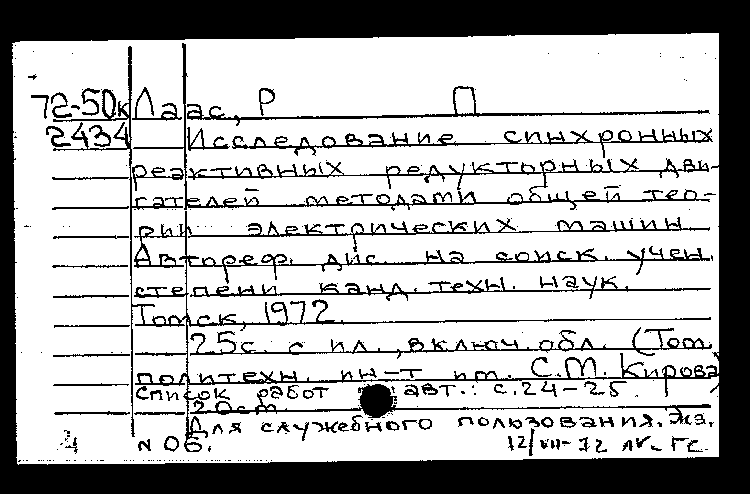 72-50к Лаас, Р П
2434 Исследование синхронных
реактивных редукторных дви-
гателей методами общей тео-
рии электрических машин.
Автореф. дис. на соиск. учен.
степени канд. техн. наук.
Томск, 1972.
25с. с ил., включ. обл. (Том.
политехн. ин-т им. С.М. Кирова)
Список работ авт.: с.24-25.
20см.
Для служебного пользования. Экз.
4 N 06. 12/VII-72